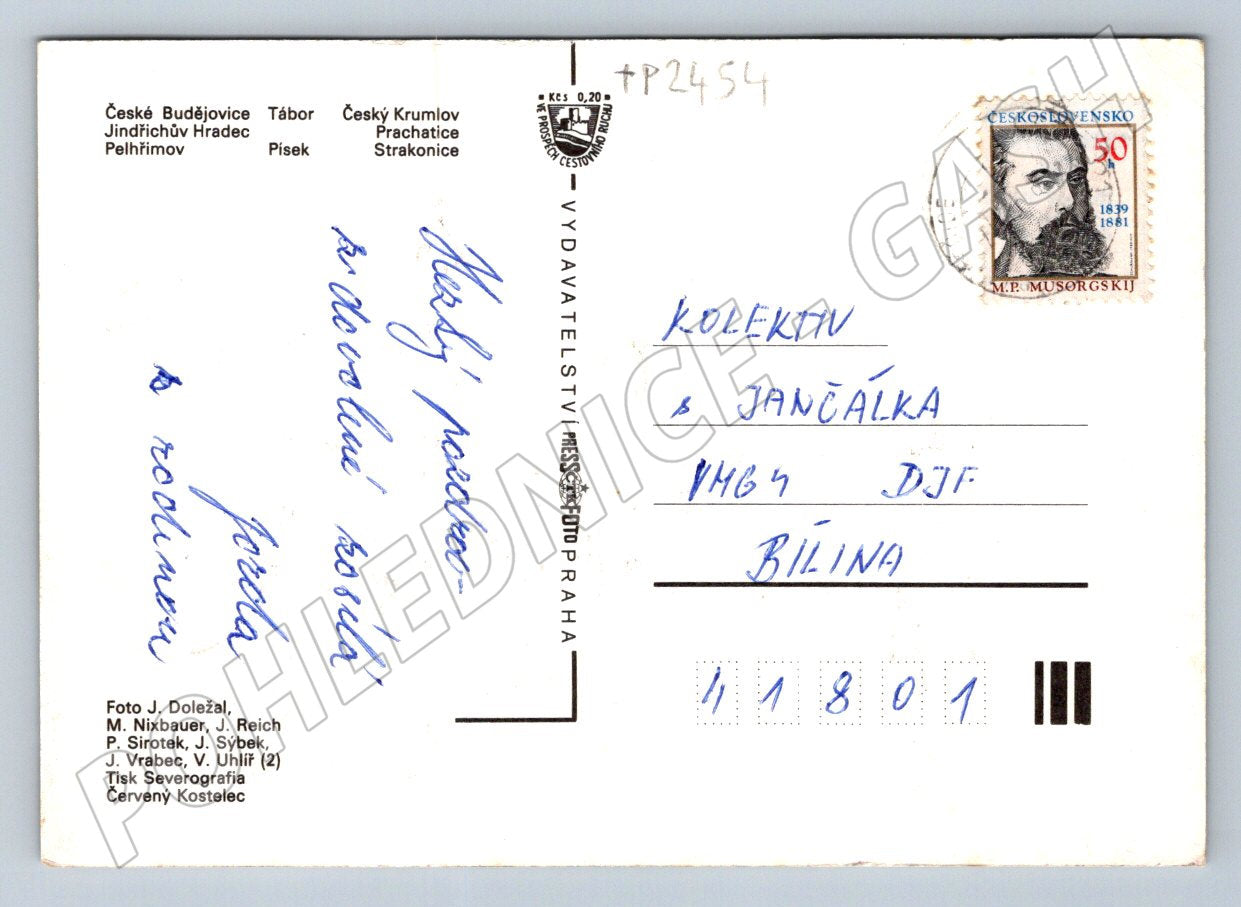 České Budějovice Tábor Český Krumlov
Jindřichův Hradec Prachatice
Pelhřimov Písek Strakonice
Kčs 0,20
VE PROSPĚCH CESTOVNÍHO RUCHU
+P2454
ČESKOSLOVENSKO
50
h
1839
1881
M.P. MUSORGSKIJ
Hezký pozdrav
z dovolené zasílá
Jarda
s rodinou
VYDAVATELSTVÍ PRESSFOTO PRAHA
ČTK
KOLEKTIV
s JANČÁLKA
DJF
BÍLINA
41801
Foto J. Doležal,
M. Nixbauer, J. Reich
P. Sirotek, J. Sýbek,
J. Vrabec, V. Uhlíř (2)
Tisk Severografia
Červený Kostelec
POHLEDNICE - GASH